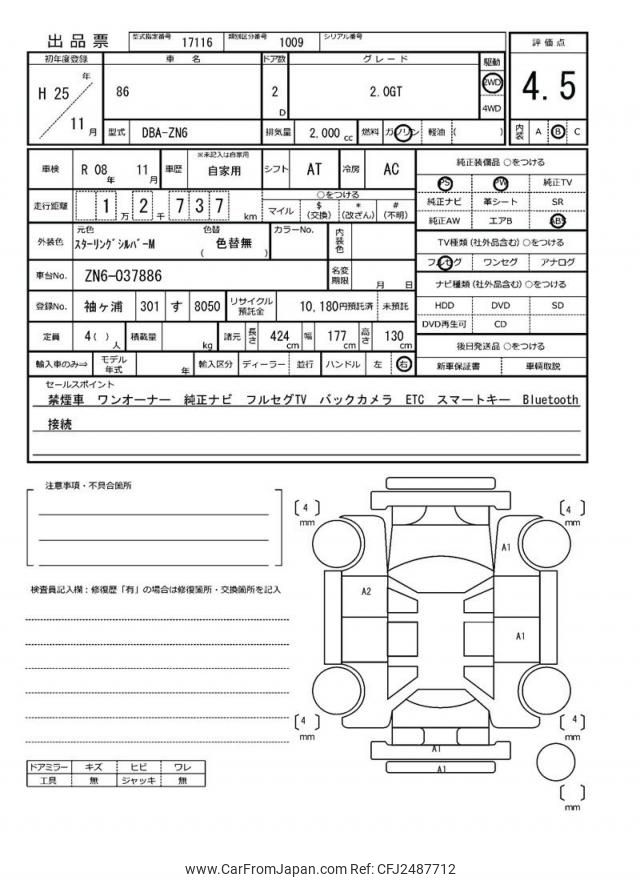 出品票
型式指定番号 17116 類別区分番号 1009 シリアル番号
初年度登録 車 名 ドア数 グレード 駆動 評価点
H 25 年 11 月
86
2 D
2.0GT
2WD
4WD
4.5
型式 DBA-ZN6 排気量 2,000 cc 燃料 ガソリン 軽油 ( )
内装 A B C
車検 R 08 年 11 月 車歴 ※未記入は自家用 自家用 シフト AT 冷房 AC
走行距離 1 万 2 千 7 3 7 km
○をつける
マイル $ (交換) * (改ざん) # (不明)
外装色 元色 ｽﾀｰﾘﾝｸﾞｼﾙﾊﾞｰM 色替 ( 色替無 ) カラーNo. 内装色
車台No. ZN6-037886 名変期限 月 日
登録No. 袖ヶ浦 301 す 8050 リサイクル預託金 10,180円預託済 未預託
定員 4( ) 人 積載量 kg 諸元 長さ 424 cm 幅 177 cm 高さ 130 cm
輸入車のみ⇒ モデル年式 年 輸入区分 ディーラー 並行 ハンドル 左 右
純正装備品 ○をつける
PS PW 純正TV
純正ナビ 革シート SR
純正AW エアB ABS
TV種類 (社外品含む) ○をつける
フルセグ ワンセグ アナログ
ナビ種類 (社外品含む) ○をつける
HDD DVD SD
DVD再生可 CD
後日発送品 ○をつける
新車保証書 車輌取説
セールスポイント
禁煙車 ワンオーナー 純正ナビ フルセグTV バックカメラ ETC スマートキー Bluetooth
接続
注意事項・不具合箇所
検査員記入欄：修復歴「有」の場合は修復箇所・交換箇所を記入
ドアミラー キズ ヒビ ワレ
工具 無 ジャッキ 無
4 mm
4 mm
A1
A2
A1
4 mm
4 mm
A1
A1
mm
www.CarFromJapan.com Ref: CFJ2487712